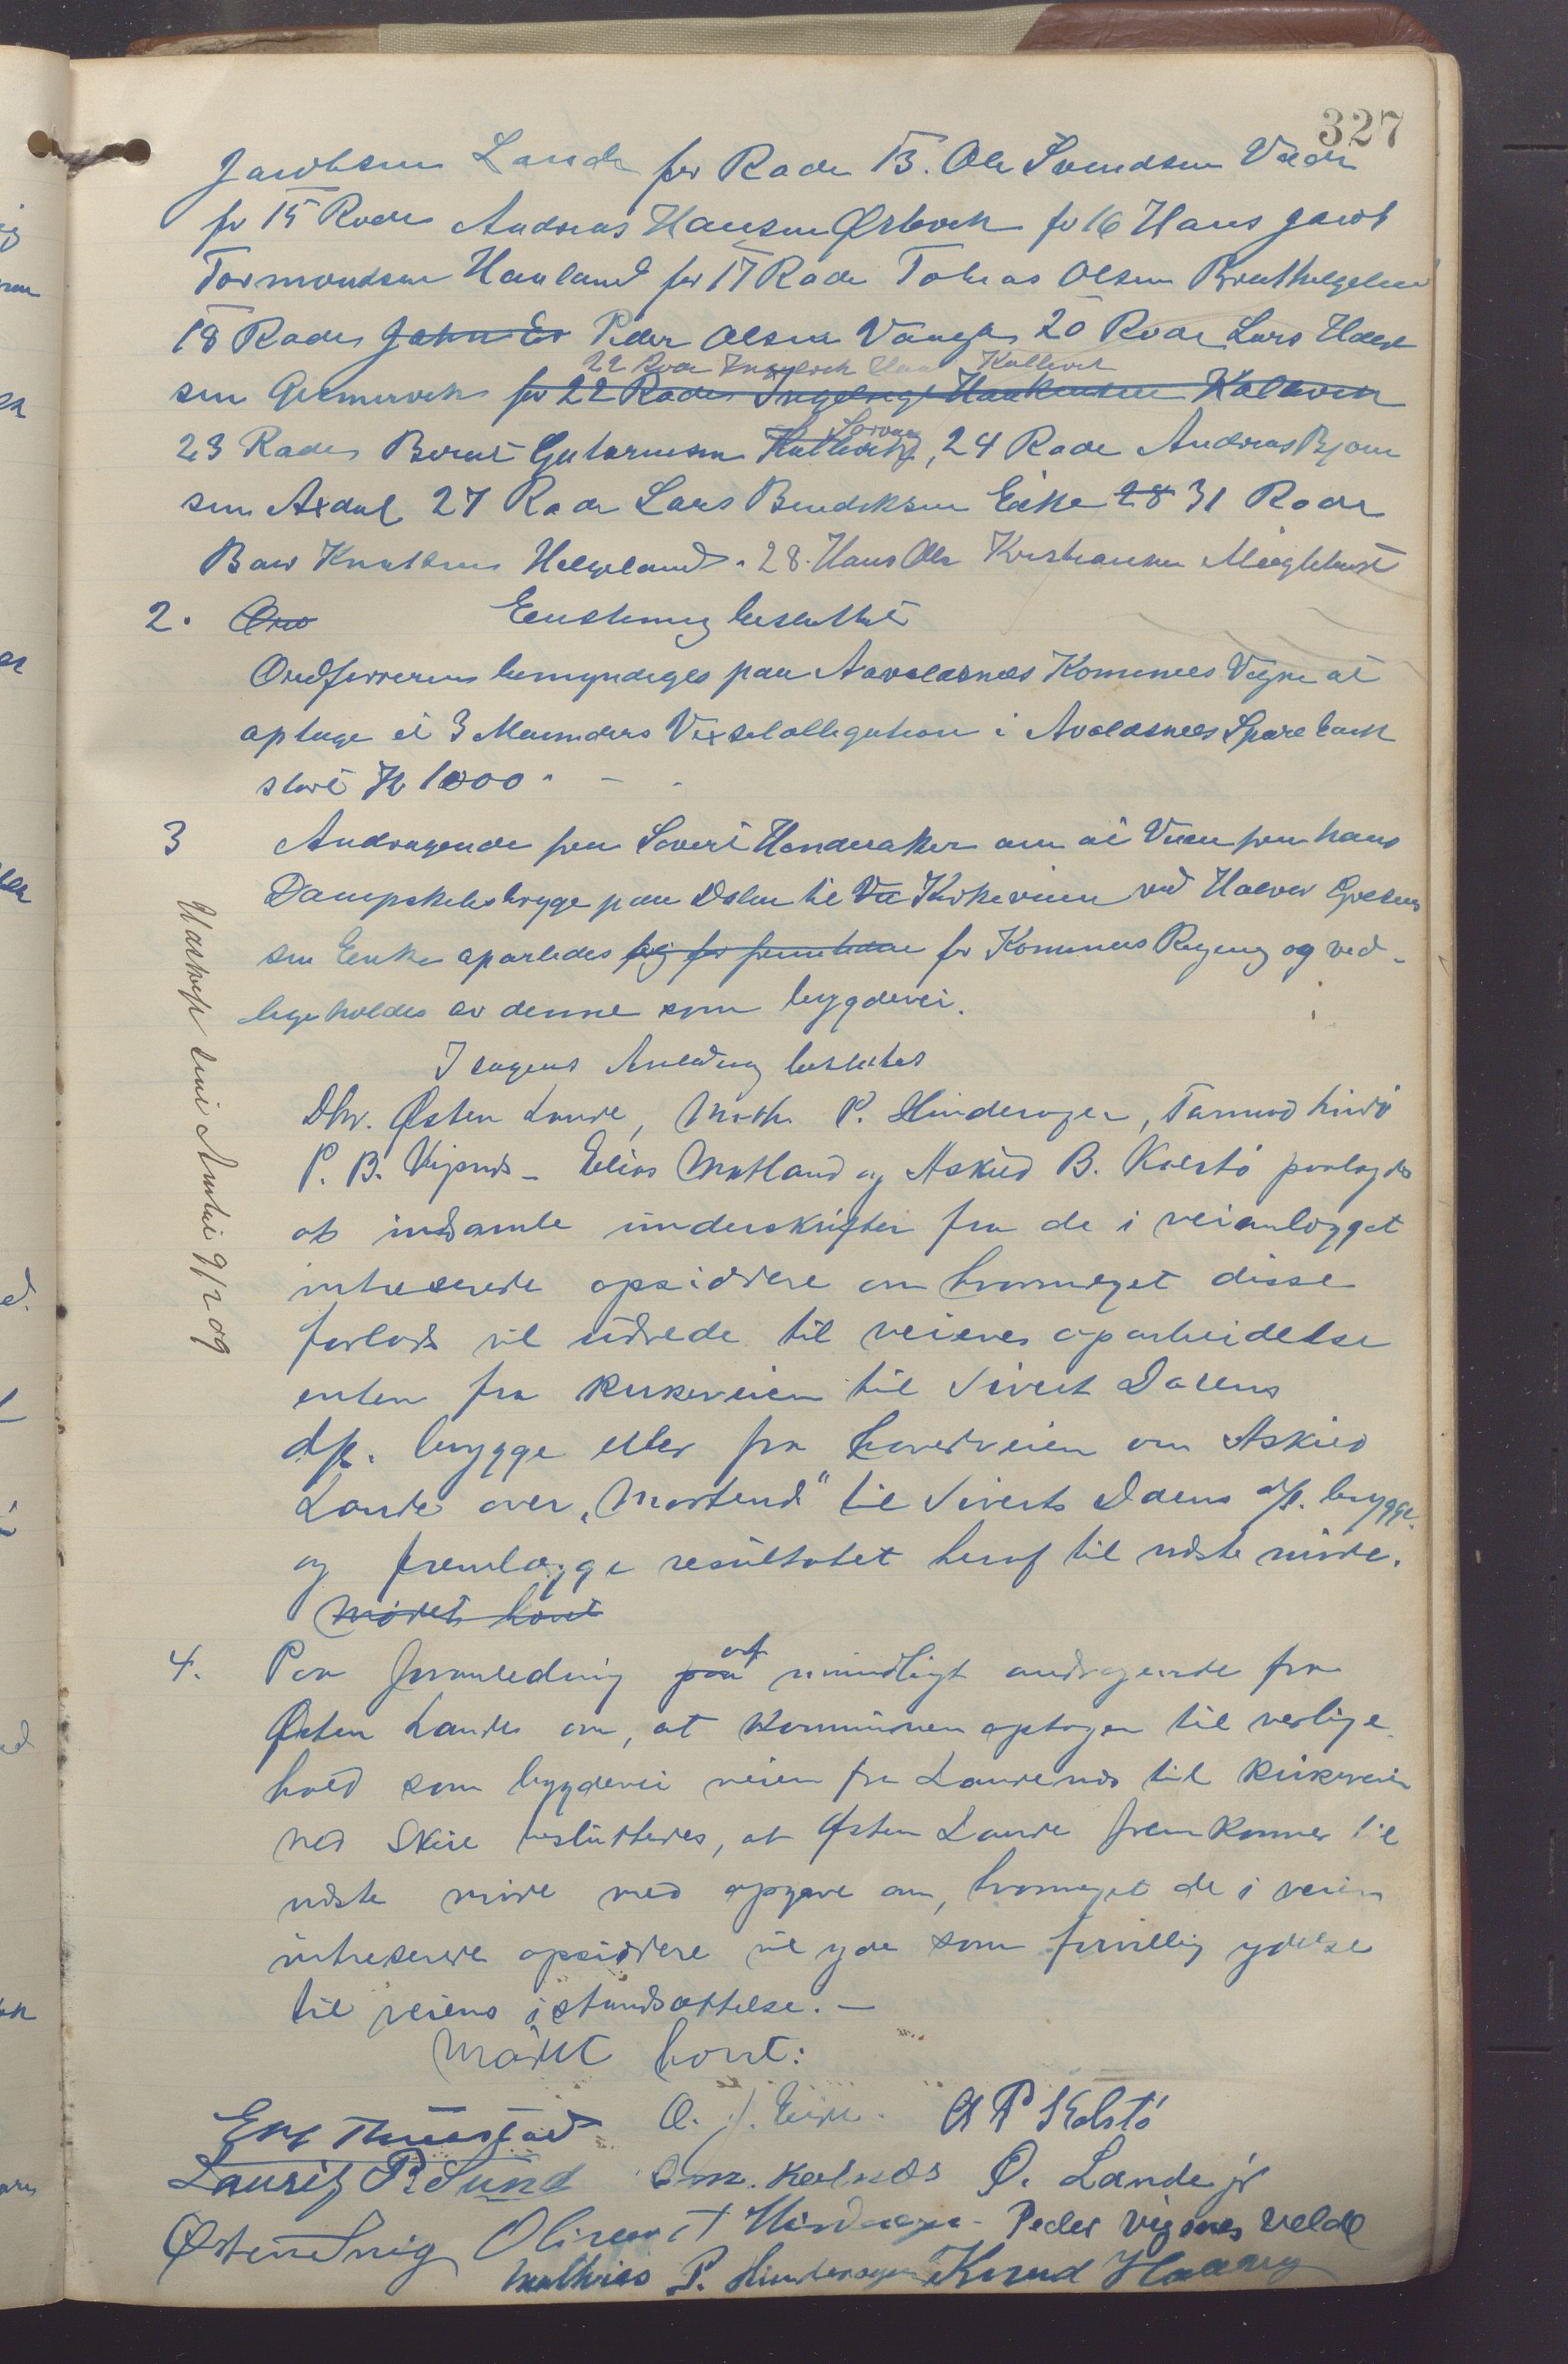 327
Jacobsen Lande for Rode 13. Ole Svendsen Vaade
for 15 Rode Andreas Hansen Ørbæk for 16 Hans Jacob
Tormondsen Hauland for 17 Rode Tobias Olsen Bratthelgeland
18 Rodes John Peder Olsen Vange 20 Rode Lars
22 Rode Kallevik
sen for 22 Rodes Haakensen Kallevik
23 Rodes Berent Gutormsen Kallevik, 24 Rode Andreas Bjørn
sen Axdal 27 Rode Lars Bendiksen Eike 28 31 Rode
Baar Knutsen Helgeland. 28. Hans Ole Kristiansen
2. Eenstemig besluttet
Ordføreren bemyndiges paa Avaldsnes Kommunes Vegne at
optage et 3 Maaneders Vexelobligation i Avaldsnes Sparebank
stort Kr 1000.
3 Andragende fra Sivert Hinderaker om at Veien fra hans
Dampskibsbrygge paa Dalen til Kirkeveien ved
sen Eike oparbedes for Kommunens Regning og ved-
ligeholdes av denne som bygdevei.
I sagens Anledning besluttes
Dhr. Østen Lande, Math. P. Hinderager, Tarmod
P. B. Vignæs - Elias Matland og Askild B. Kolstö paalagdes
at indsamle underskrifter fra de i veianlægget
intreserede opsiddere om hvormeget disse
forlods vil udrede til veienes oparbeidelse
enten fra Kirkeveien til Sivert Dalens
dp. brygge eller fra hovedveien om Askild
Lande over "Mortend" til Siverts Dalens dp. brygge
og fremlægge resultatet heraf til næste møde.
Mødet hævet
Udskrift sent Amtet 9/2 09
4. Paa foranledning paa af mundtligt andragende fra
Østen Lande om, at Kommunen optager til vedlige
hold som bygdevei veien fra Landenes til Kirkeveien
ved Skeie besluttedes, at Østen Lande fremkommer til
næste møde med opgave om, hvormeget de i veien
intreserede opsiddere vil yde som frivillig ydelse
til veiens istandsættelse. -
Mødet hævet:
O. J. Eide. A P Kolstö
Laurits P. Sund Kolnæs O. Lande jr
Østen Oliver T Hinderager - Peder Vignes Velde
Mathias P. Hinderager Knud Haavig